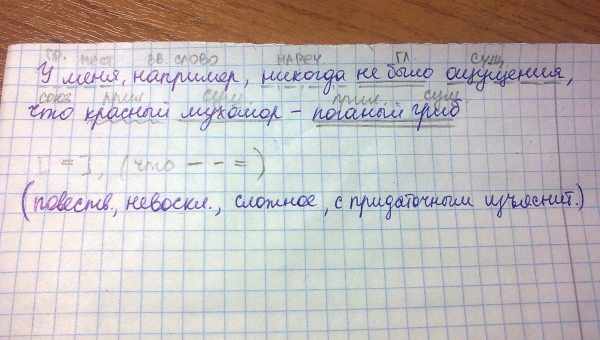 пр. мест вв. слово нареч гл сущ
У меня, например, никогда не было ощущения,
союз прил сущ. прил. сущ
что красный мухомор – поганый гриб
[ = ], (что – – =)
(повеств, невоскл., сложное, с придаточным изъяснит.)